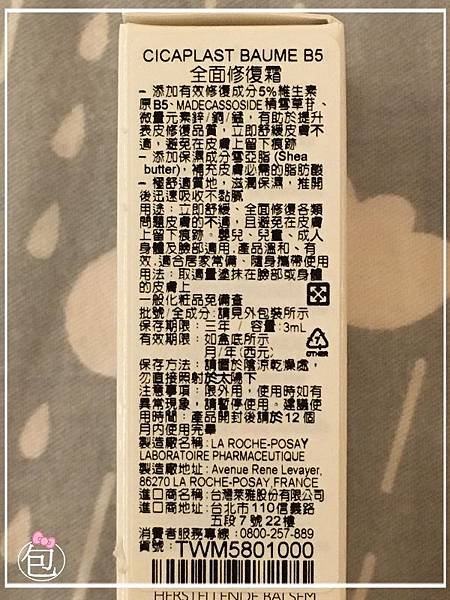 CICAPLAST BAUME B5
全面修復霜
– 添加有效修復成分5%維生素
原B5、MADECASSOSIDE積雪草苷、
微量元素鋅/銅/錳，有助於提升
表皮修復品質，立即舒緩皮膚不
適，避免在皮膚上留下痕跡
– 添加保濕成分雪亞脂 (Shea
butter)，補充皮膚必需的脂肪酸
– 極舒適質地，滋潤保濕，推開
後迅速吸收不黏膩
用途：立即舒緩、全面修復各類
問題皮膚的不適，且避免在皮膚
上留下痕跡。嬰兒、兒童、成人
身體及臉部適用.產品溫和、有
效.適合居家常備、隨身攜帶使用
用法：取適量塗抹在臉部或身體
的皮膚上
一般化粧品免備查
批號/全成分：請見外包裝所示
保存期限：三年 / 容量：3mL
有效期限：如盒底所示
月/年(西元)
7
OTHER
保存方法：請置於陰涼乾燥處，
勿直接照射於太陽下
注意事項：限外用，使用時如有
異常現象，請暫停使用。建議使
用時間：產品開封後請於12個
月內使用完畢
製造廠名稱：LA ROCHE-POSAY
LABORATOIRE PHARMACEUTIQUE
製造廠地址：Avenue Rene Levayer,
86270 LA ROCHE-POSAY,FRANCE
進口商名稱：台灣萊雅股份有限公司
進口商地址：台北市110信義路
五段7號22樓
消費者服務專線：0800-257-889
貨號：TWM5801000
HERSTELLENDE BALSEM
包